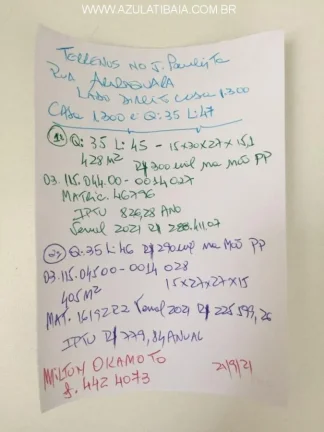 WWW.AZULATIBAIA.COM.BR
TERRENOS NO J. Paulista
RUA ARARAQUARA
LADO DIREITO CASA 1300
CASA 1300 é Q:35 L:47
1º) Q:35 L:45 - 15x30x27x15,1
428 m² R$ 300 mil na mão PP
03.115.044.00-0014027
MATRIC. 46796
IPTU 826,28 ANO
Venal 2021 R$ 238.411,07
2º) Q:35 L:46 R$ 290 mil na mão PP
03.115.04500-0014 028
405 m² 15x27x27x15
MAT. 1619222 Venal 2021 R$ 225.599,26
IPTU R$ 779,84 ANUAL
MILTON OKAMOTO
f. 442 4073
21/9/21